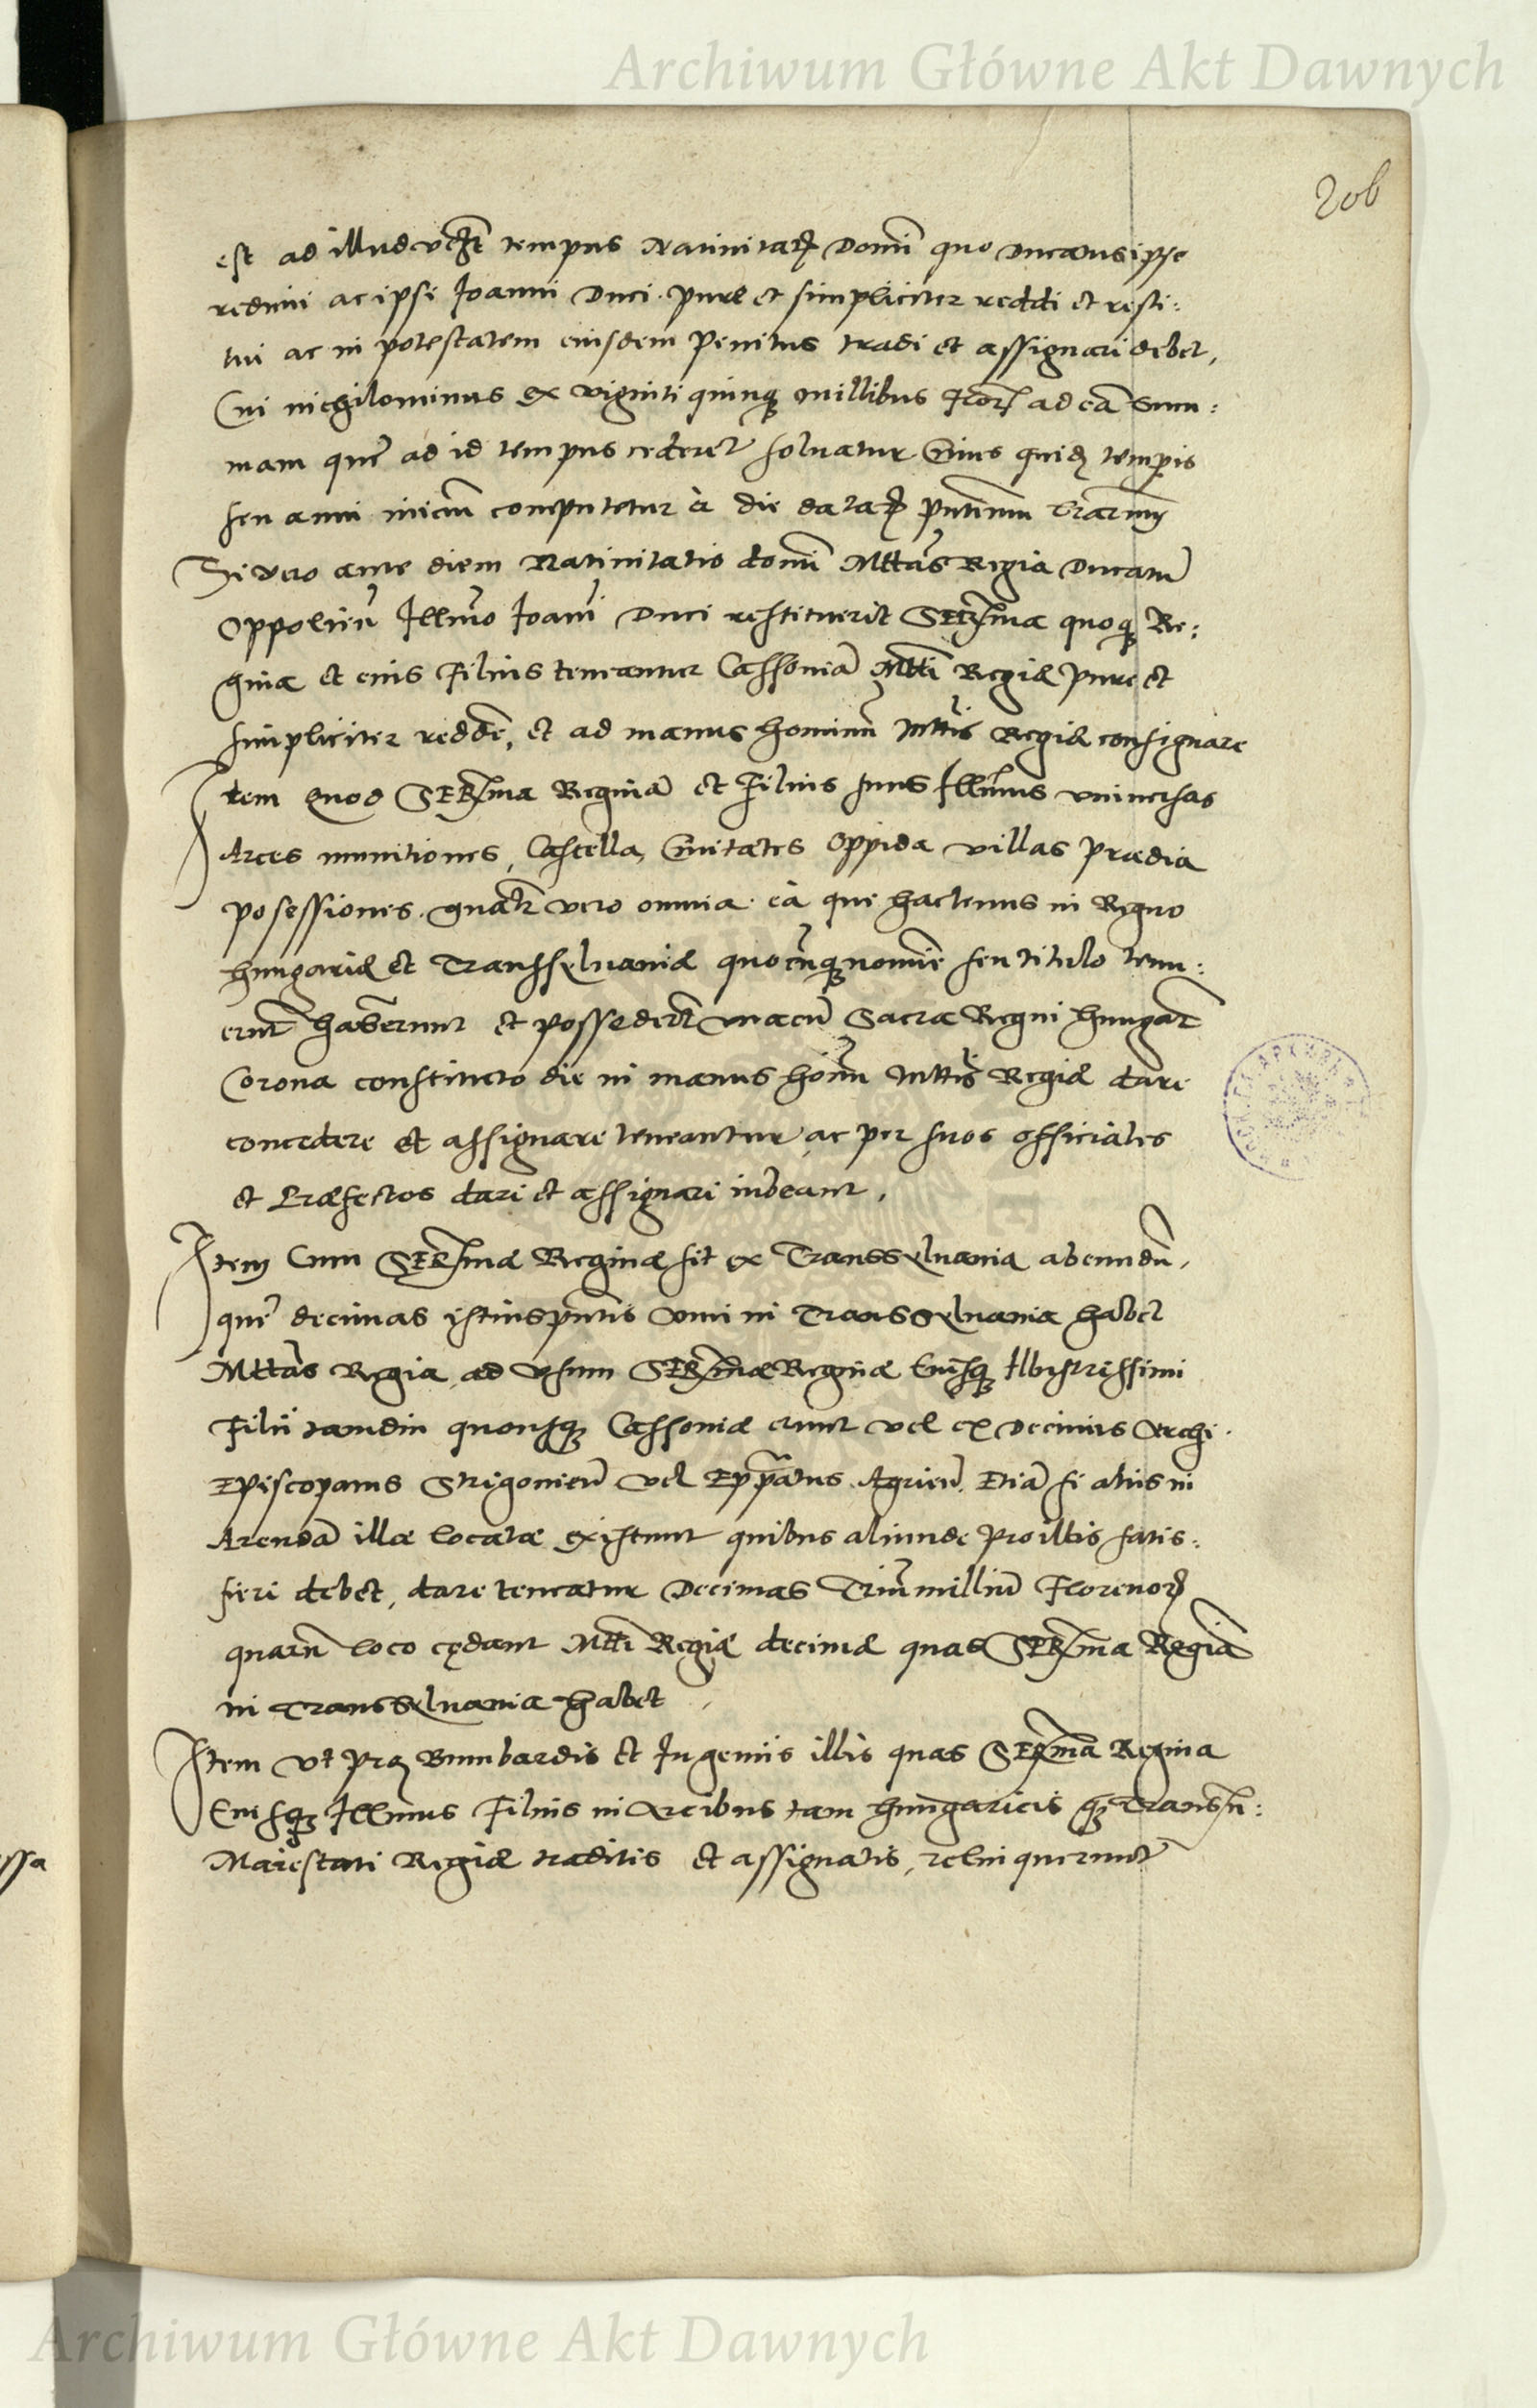 Archiwum Główne Akt Dawnych
206
est ad illud vsq tempus Natiuitatis Domi quo Ducatus ipse
redimi ac ipsi Joanni Duci pure et simpliciter reddi et resti:
tui ac in potestatem eiusdem penitus tradi et assignari debet,
Cui nichilominus ex viginti quinq millibus flor ad eā Sum:
mam que ad id tempus cederet soluatur Cuius quidē tempis
seu anni iniciū computetur à die datar pntium lrarum
Si vero ante diem Natiuitatis domi Mttas Regia Ducatū
Oppolieñ Illmo Joanni Duci restituerit SERma quoq Re:
gina et eius Filius teneantur Cassouiā Mtti Regiæ pure et
simpliciter redde, et ad manus hominū Mttis Regiæ consignare
Item Quod SERma Regina et Filius suus Illmus vniuersas
Arces munitiones, Castella, Ciuitates Oppida villas prædia
posessiones. quæ vero omnia ea que hactenus in Regno
hungariæ et Transsyluaniæ quocūq nomie seu titulo tenu:
erūt habuerunt et possederūt vnacū Sacra Regni hungariæ
Corona constituto die in manus hoim Mttis Regiæ dare
concedere et assignare teneantur, ac per suos officiales
et Præfectos dari et assignari iubeant,
Item Cum SERmæ Reginæ sit ex Transsyluania abeundū,
que decimas istius pntis vini in Transsyluania habet
Mttas Regia ad vsum SERmæ Reginæ Eiusq Illustrissimi
Filii tamdiu quousq Cassouiæ erunt vel ex Decimis Archi
Episcopatus Strigonieñ vel Eppatus Agrieñ Etiā si aliis in
Arendā illæ locatæ existunt quibus aliunde pro illis satis:
fieri debet, dare teneatur Decimas Triū milliū Florenor
quarū loco cędant Mtti Regiæ decimæ quas SERma Regina
in Transsyluania habet
Item Vt pro Bombardis et Ingeniis illis quas SERma Regina
Eiusq Illmus Filius in Arcibus tam hungaricis q Transsyl:
Maiestati Regiæ traditis et assignatis, reliquerunt
ssa
Archiwum Główne Akt Dawnych